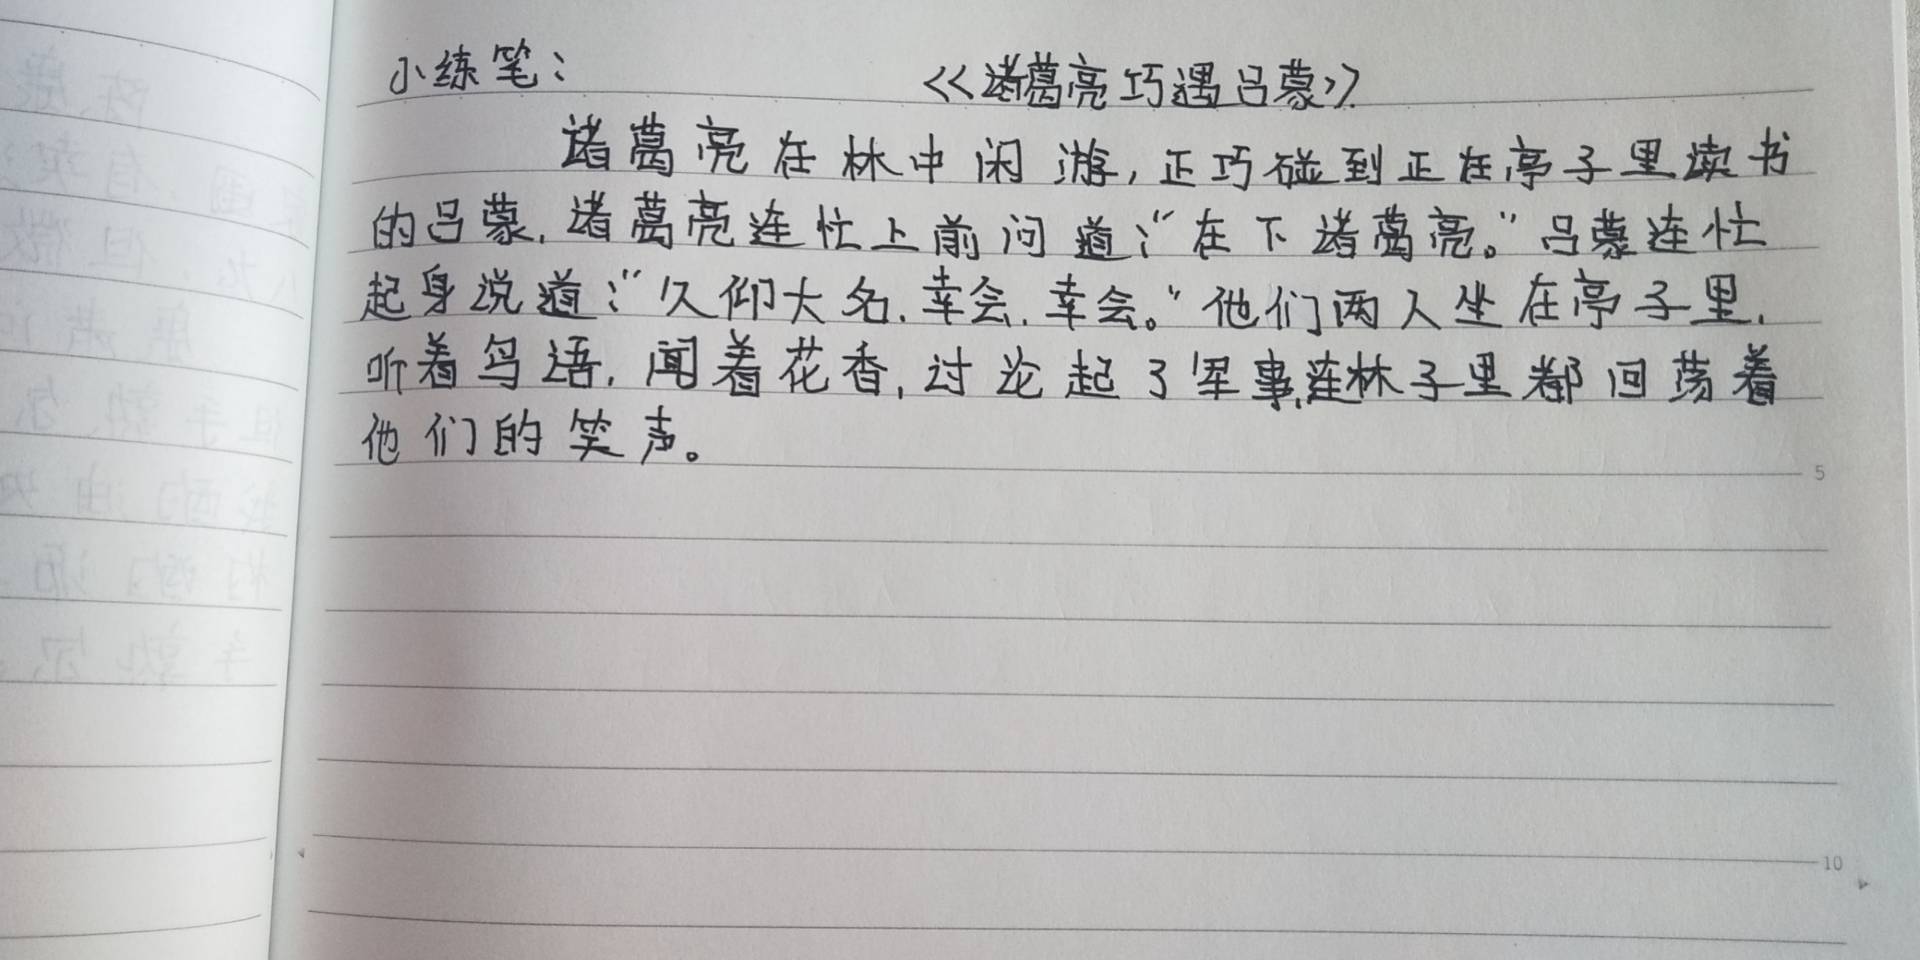 小练笔：
《诸葛亮巧遇吕蒙》
诸葛亮在林中闲游,正巧碰到正在亭子里读书
的吕蒙,诸葛亮连忙上前问道:“在下诸葛亮。”吕蒙连忙
起身说道:“久仰大名,幸会,幸会。”他们两人坐在亭子里,
听着鸟语,闻着花香,讨论起了军事,连林子里都回荡着
他们的笑声。
5
10